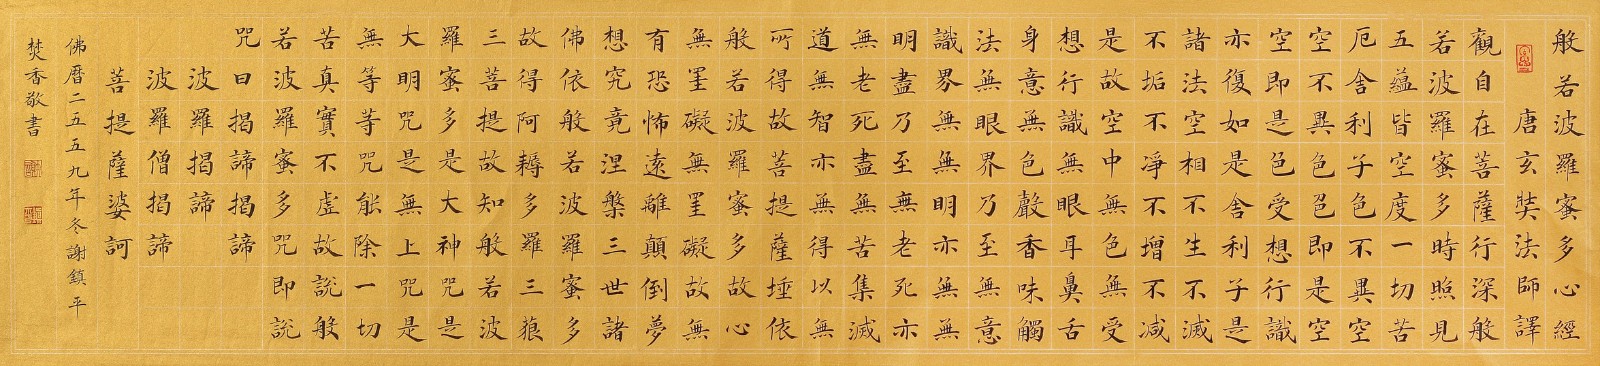 般若波羅蜜多心經
唐玄奘法師譯
觀自在菩薩行深般
若波羅蜜多時照見
五蘊皆空度一切苦
厄舍利子色不異空
空不異色色即是空
空即是色受想行識
亦復如是舍利子是
諸法空相不生不滅
不垢不凈不增不减
是故空中無色無受
想行識無眼耳鼻舌
身意無色聲香味觸
法無眼界乃至無意
識界無無明亦無無
明盡乃至無老死亦
無老死盡無苦集滅
道無智亦無得以無
所得故菩提薩埵依
般若波羅蜜多故心
無罣礙無罣礙故無
有恐怖遠離顛倒夢
想究竟涅槃三世諸
佛依般若波羅蜜多
故得阿耨多羅三藐
三菩提故知般若波
羅蜜多是大神咒是
大明咒是無上咒是
無等等咒能除一切
苦真實不虛故說般
若波羅蜜多咒即說
咒曰揭諦揭諦
波羅揭諦
波羅僧揭諦
菩提薩婆訶
佛曆二五五九年冬謝鎮平
焚香敬書